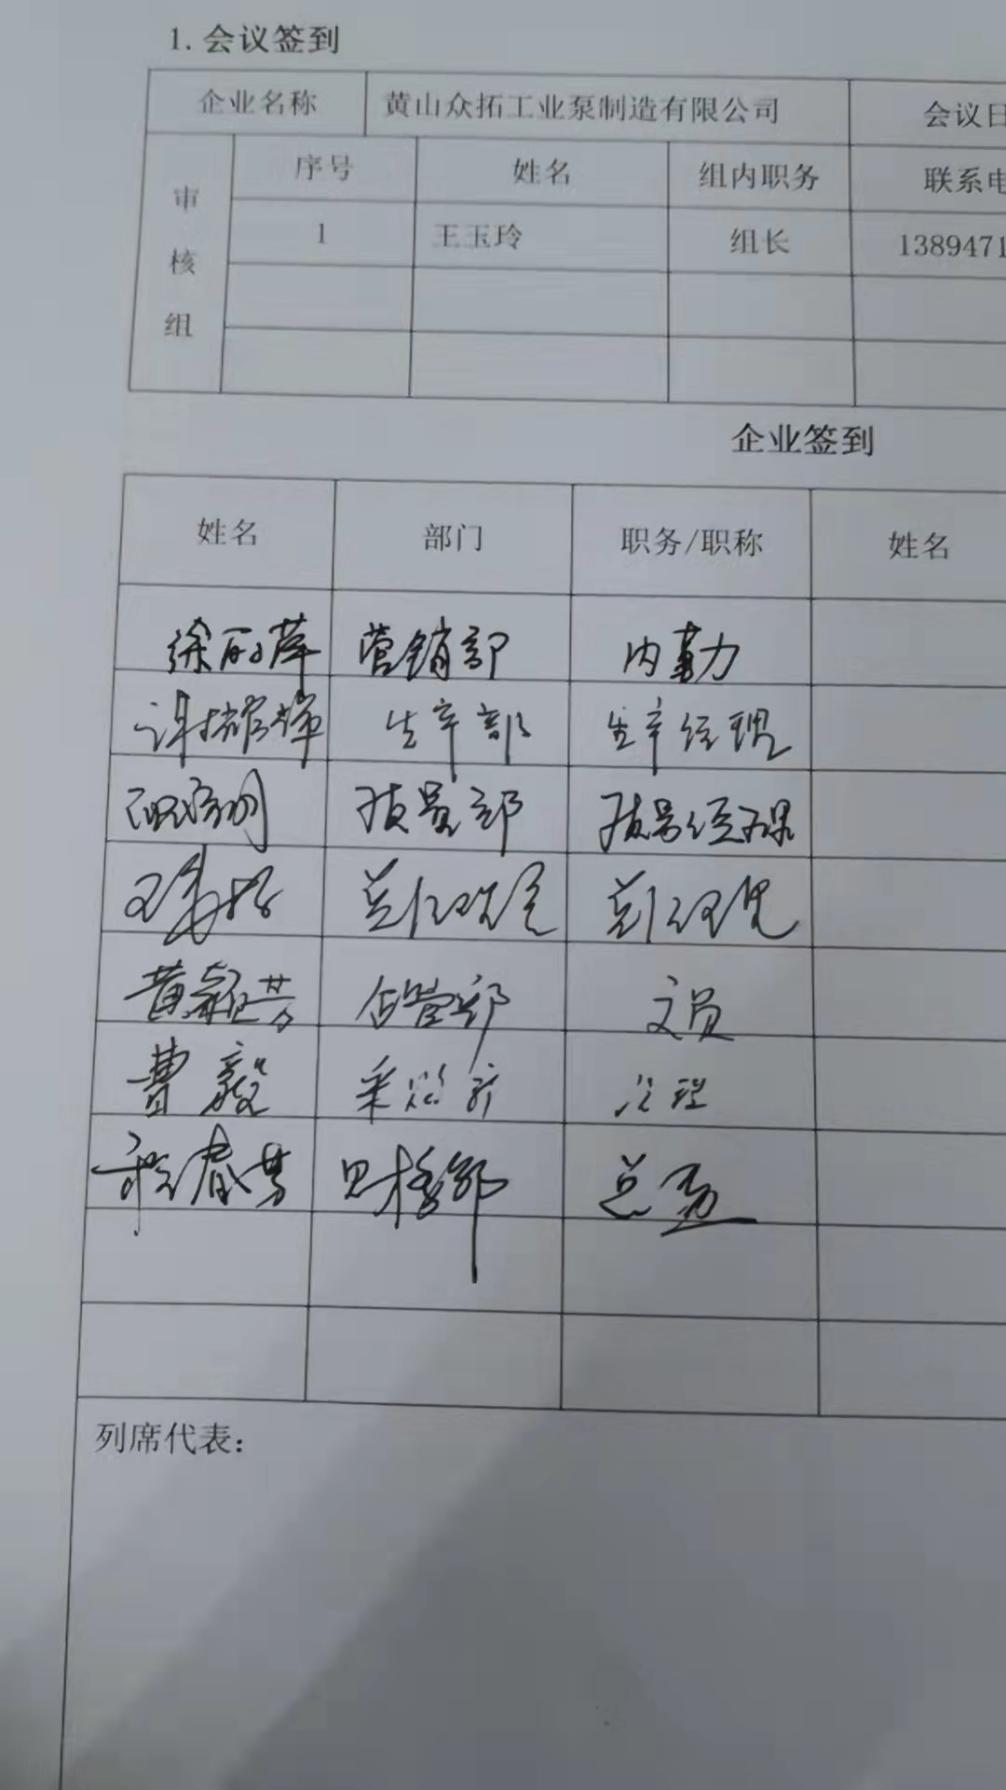 1. 会议签到
企业名称 黄山众拓工业泵制造有限公司 会议日
审核组 序号 姓名 组内职务 联系电
1 王玉玲 组长 1389471
企业签到
姓名 部门 职务/职称 姓名
徐丽萍 营销部 内勤
谢耀辉 生产部 生产经理
质量部 质量经理
总经理
黄颖芳 企管部 文员
曹毅 采购部 经理
程春芳 财务部 总监
列席代表: